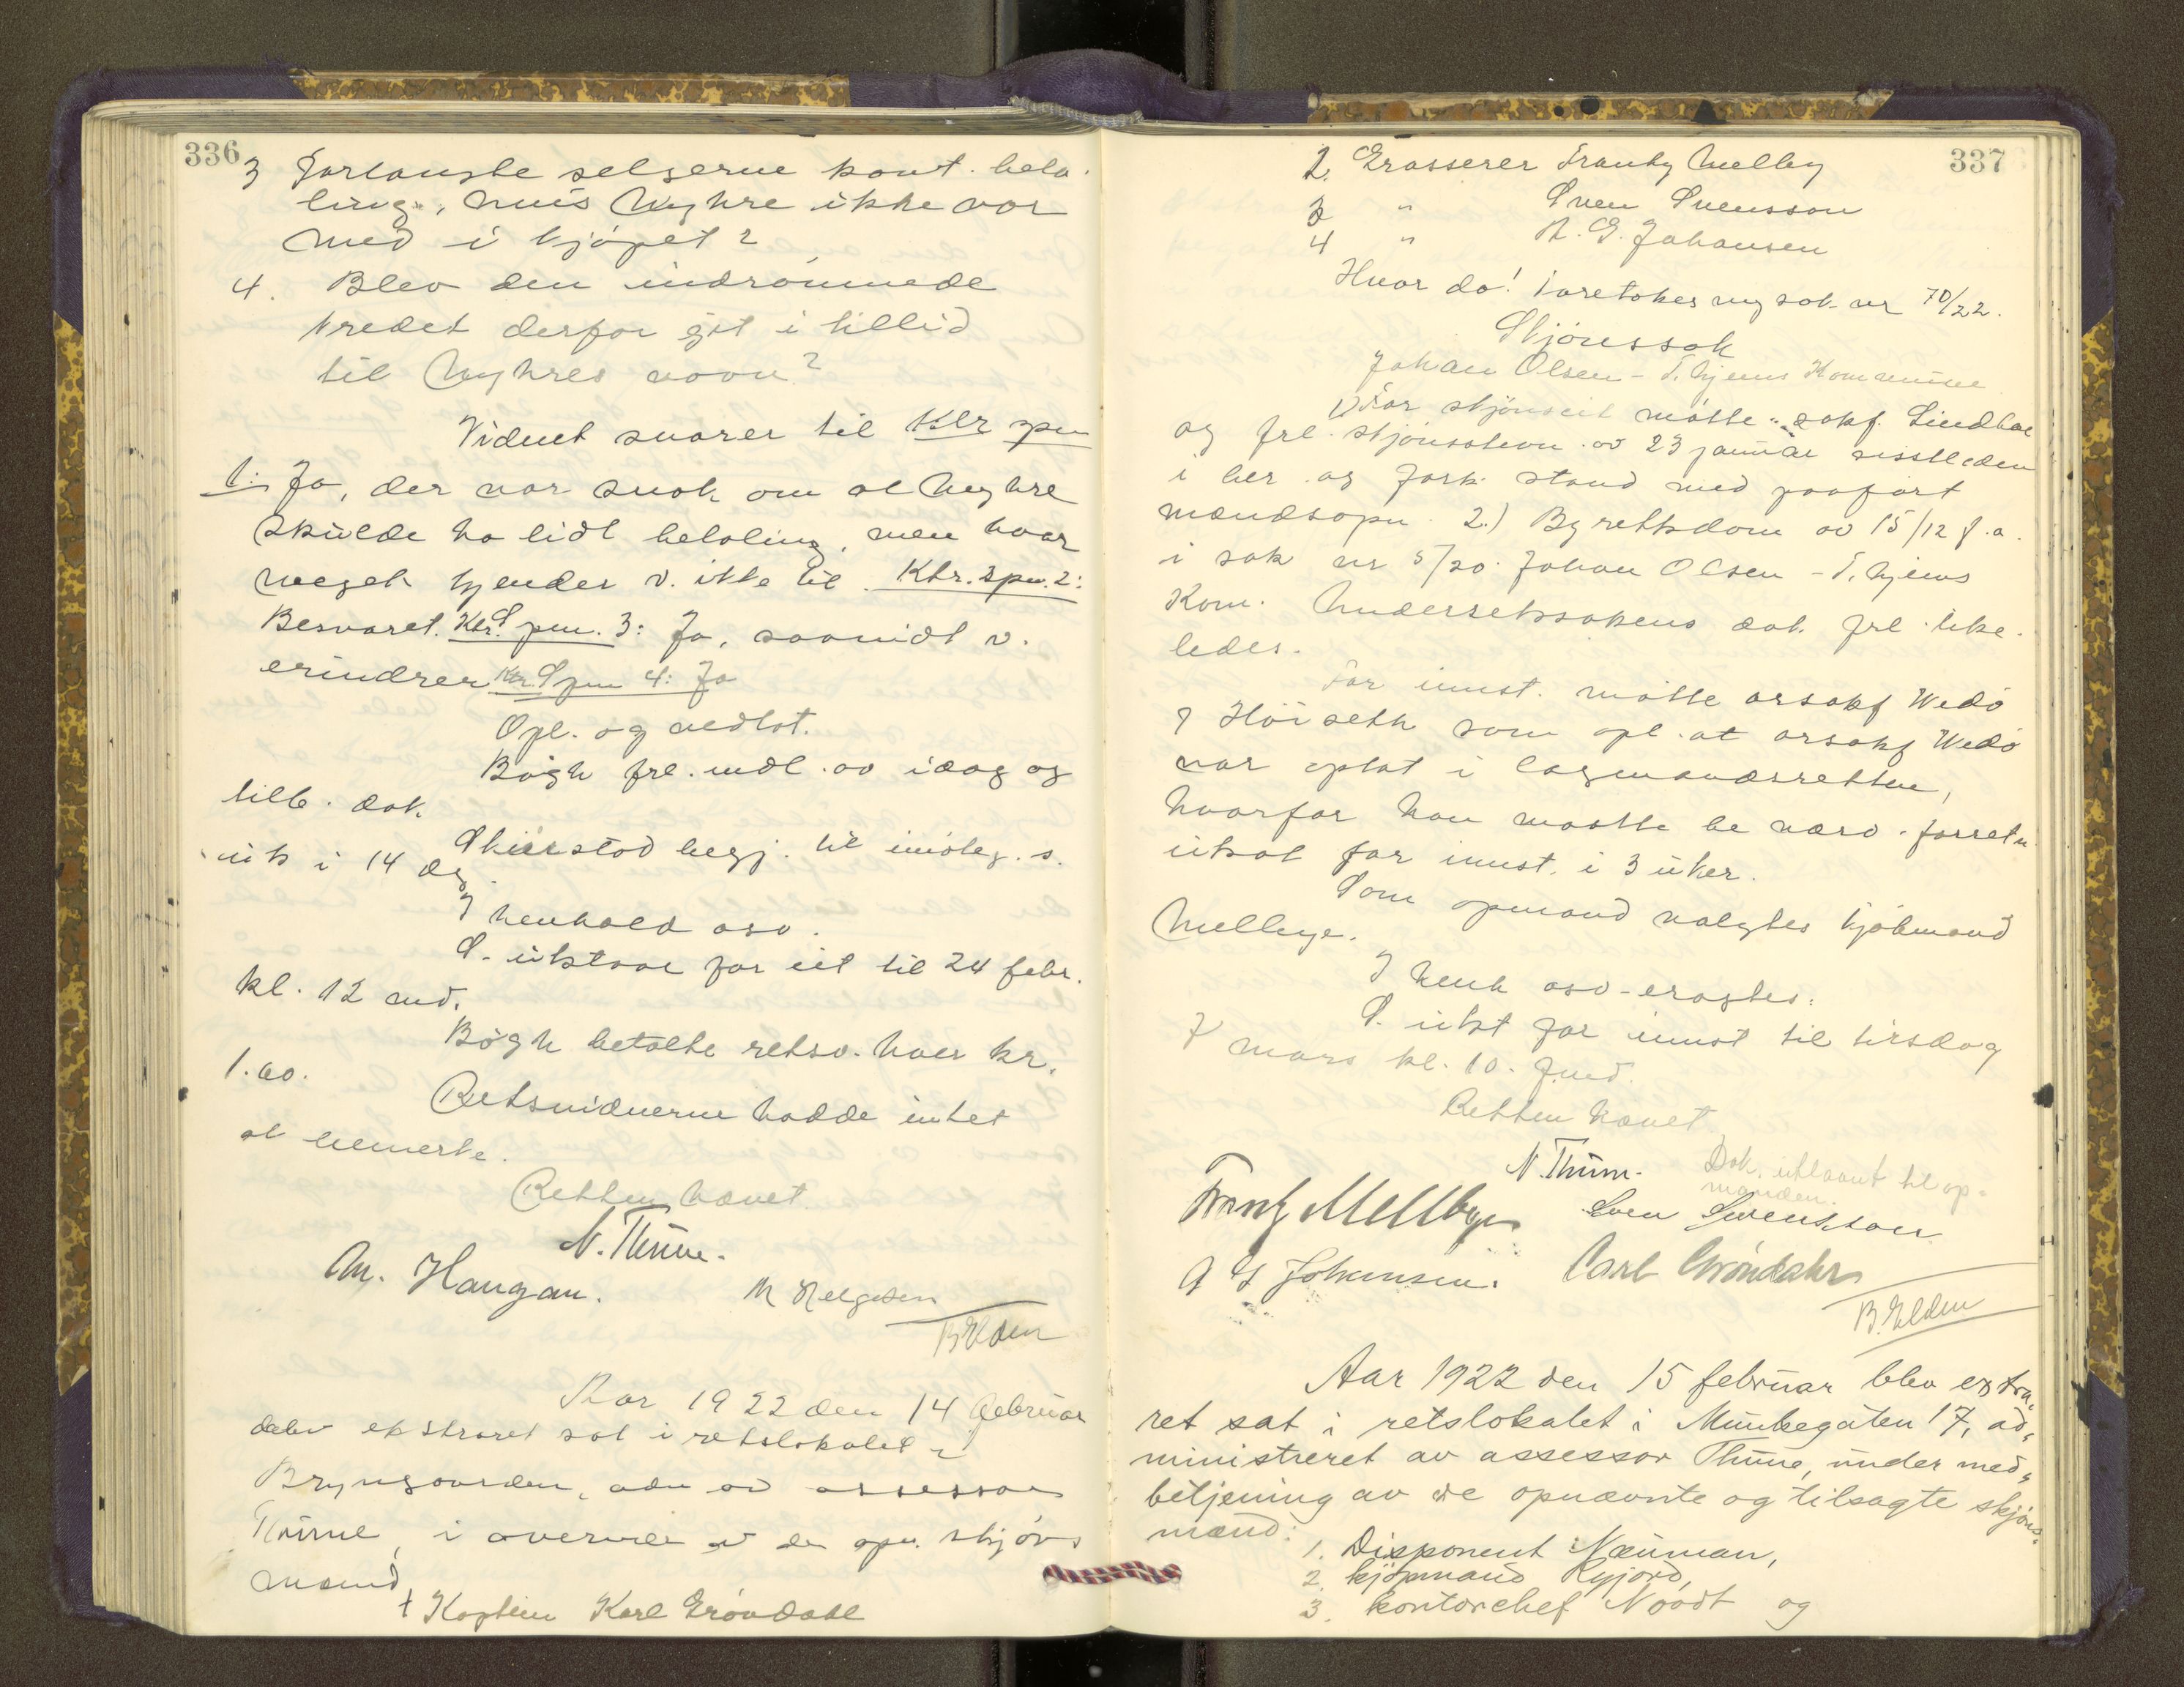 336
3 Forlangte selgerne kont. beta-
ling, hvis Myhre ikke var
med i kjøpet?
4. Blev den indrømmede
kredit derfor git i tillid
til Myhres navn?
Vidnet svarer til Ktr spm
1: Ja, der var snak om at Myhre
skulde ha litt betaling, men hvor
meget kjender v. ikke til. Ktr. spm. 2:
Besvaret. Ktr. Spm. 3: Ja, saavidt v.
erindrer Ktr. Spm 4: Ja
Opl. og vedtat.
Bøgh frl. indl. av idag og
tillb. dok.
Skierstad begj. til imøteg. s.
uts i 14 dg.
I henhold osv.
S. utstaar for eit til 24 febr.
kl. 12 md.
Bøgh betalte retsv. hver kr.
1.60.
Retsvidnerne hadde intet
at bemerke.
Retten hævet
N. Thüne.
Chr. Haugan.
M Helgesen
B Elden
Aar 1922 den 14 februar
blev ekstraret sat i retslokalet i
Bryngaarden, adm av assessor
Thüne, i overvær av de opn. skjøns
mænd
1 Kaptein Karl Grøndahl
337
2. Grosserer Frantz Melby
3 " Sven Svensson
4 " A. G. Johansen
Hvor da! foretokes ny sak nr 70/22.
Skjønssak
Johan Olsen - T.hjems Kommune
1) For skjønseit møtte sakf. Lindboe
og frl. skjønsstevn. av 23 januar sistleden
i ber. og fork. stand med paaført
mændsopn. 2.) Byretsdom av 15/12 f.a.
i sak nr 5/20 Johan Olsen - T.hjems
Kom. Underretssakens dok. frl. like-
ledes.
For innst. møtte orsakf Wedø
v Høiseth som opl. at orsakf Wedø
var optat i lagmandsretten,
hvorfor han maatte be nærv. forretn.
utsat for innst. i 3 uker.
Som opmand valgtes kjøbmand
Mellbye.
I henh osv - eragtes:
S. utst for innst til tirsdag
7 mars kl. 10. fmd.
Retten hævet
N. Thüne.
Dok. utlaant til op-
manden.
Frantz Mellbye
Sven Svensson
A G Johansen.
Carl Grøndahl
B. Elden
Aar 1922 den 15 februar blev extra-
ret sat i retslokalet i Munkegaten 17, ad-
ministreret av assessor Thüne, under med-
betjening av de opnævnte og tilsagte skjøns-
mænd:
1. Disponent Næuman,
2. kjøpmand Ryjord,
3. kontorchef Noodt og